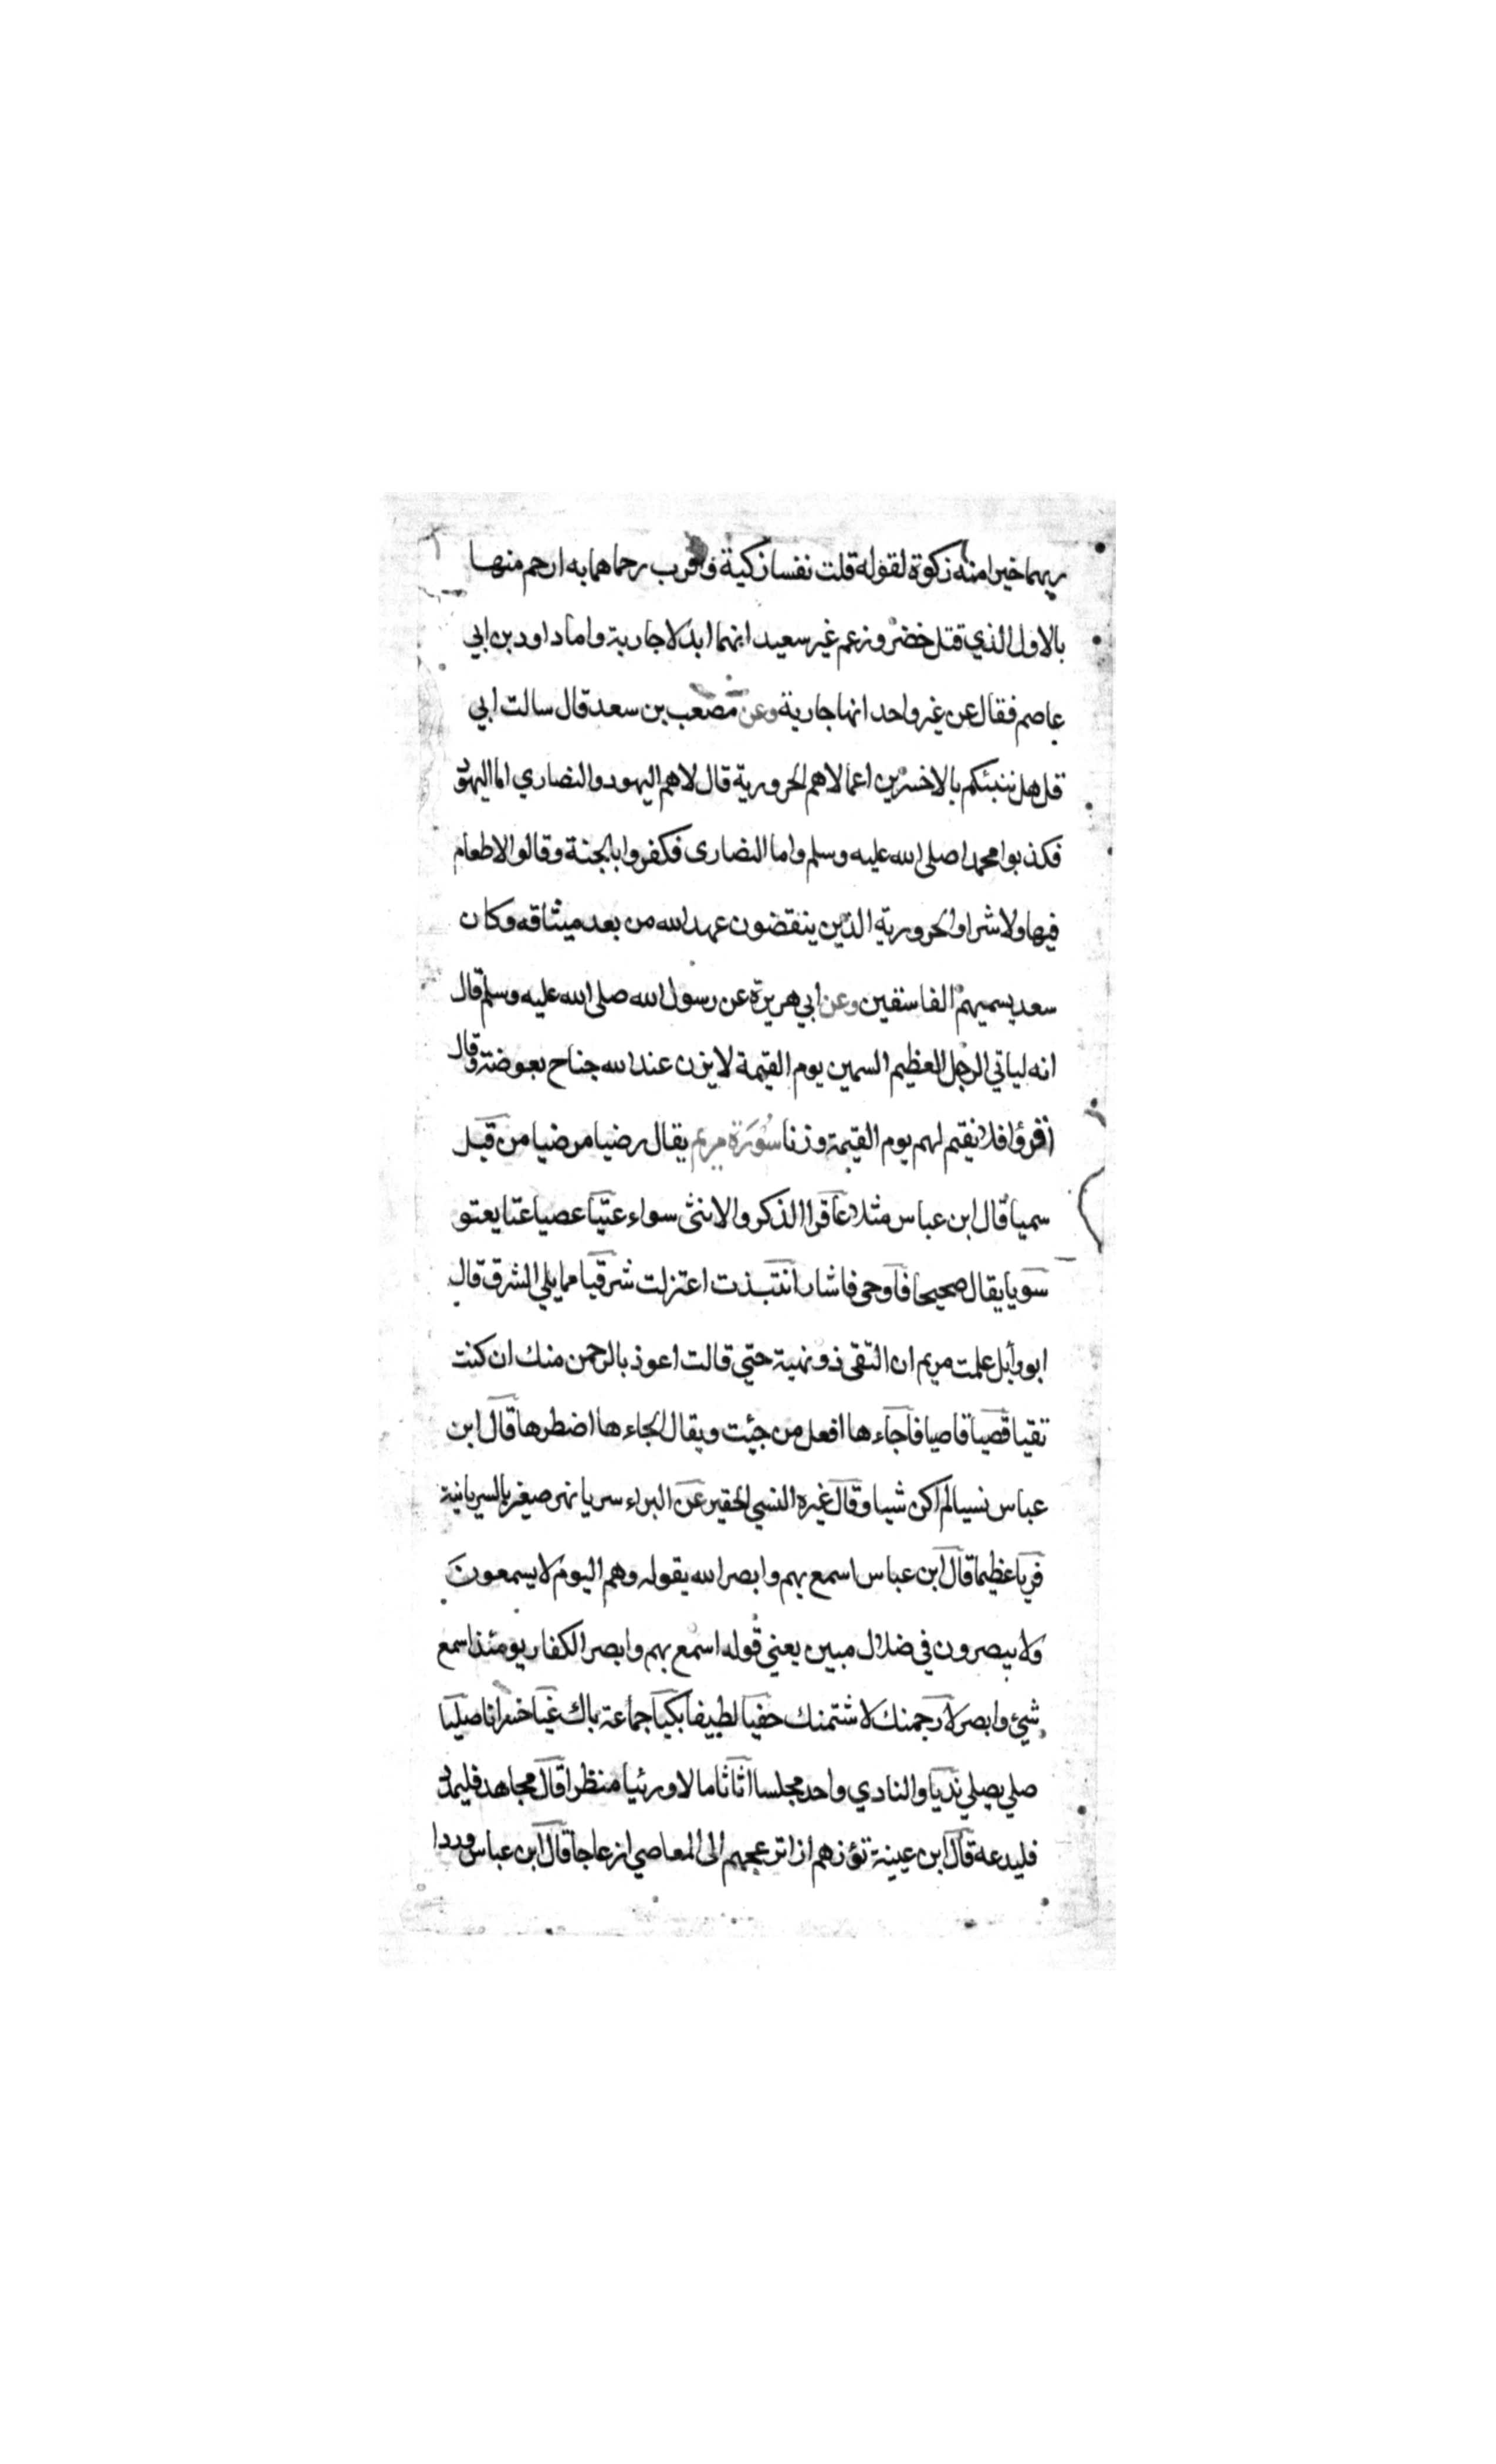 ربهما خيرا منه زكوة لقوله قلت نفسا زكية واقرب رحما هما به ارحم منهما
بالاول الذي قتل خضر وزعم غير سعيد انهما ابدلا جارية واما داود بن ابي
عاصم فقال عن غير واحد انها جارية وعن مصعب بن سعد قال سالت ابي
قل هل ننبئكم بالاخسرين اعمالا هم الحرورية قال لا هم اليهود والنصاري اما اليهود
فكذبوا محمدا صلى الله عليه وسلم واما النصارى فكفروا بالجنة وقالوا لا طعام
فيها ولا شراب والحرورية الذين ينقضون عهد الله من بعد ميثاقه وكان
سعد يسميهم الفاسقين وعن ابي هريرة عن رسول الله صلى الله عليه وسلم قال
انه لياتي الرجل العظيم السمين يوم القيمة لا يزن عند الله جناح بعوضة وقال
اقرؤا فلا نقيم لهم يوم القيمة وزنا سورة مريم يقال رضيا مرضيا من قبل
سميا قال ابن عباس مثلا عاقرا الذكر والانثى سواء عتيا عصيا عتا يعتو
سويا يقال صحيحا فاوحى فاشار انتبذت اعتزلت شرقيا مما يلي الشرق قال
ابو وايل علمت مريم ان التقى ذو نهية حتي قالت اعوذ بالرحمن منك ان كنت
تقيا قصيا قاصيا فاجاءها افعل من جئت ويقال الجاءها اضطرها قال ابن
عباس نسيا لم اكن شيا وقال غيره النسي الحقير عن البراء سريا نهر صغير بالسريانية
فريا عظيما قال ابن عباس اسمع بهم وابصر الله يقوله وهم اليوم لا يسمعون
ولا يبصرون في ضلال مبين يعني قوله اسمع بهم وابصر الكفار يومئذ اسمع
شيئ وابصر لارجمنك لاشتمنك حفيا لطيفا بكيا جماعة باك غيا خسرانا صليا
صلي يصلي نديا والنادي واحد مجلسا اثاثا مالا ورئيا منظرا قال مجاهد فليمدد
فليدعه قال ابن عيينة تؤزهم ازا تزعجهم الى المعاصي ازعاجا قال ابن عباس وردا